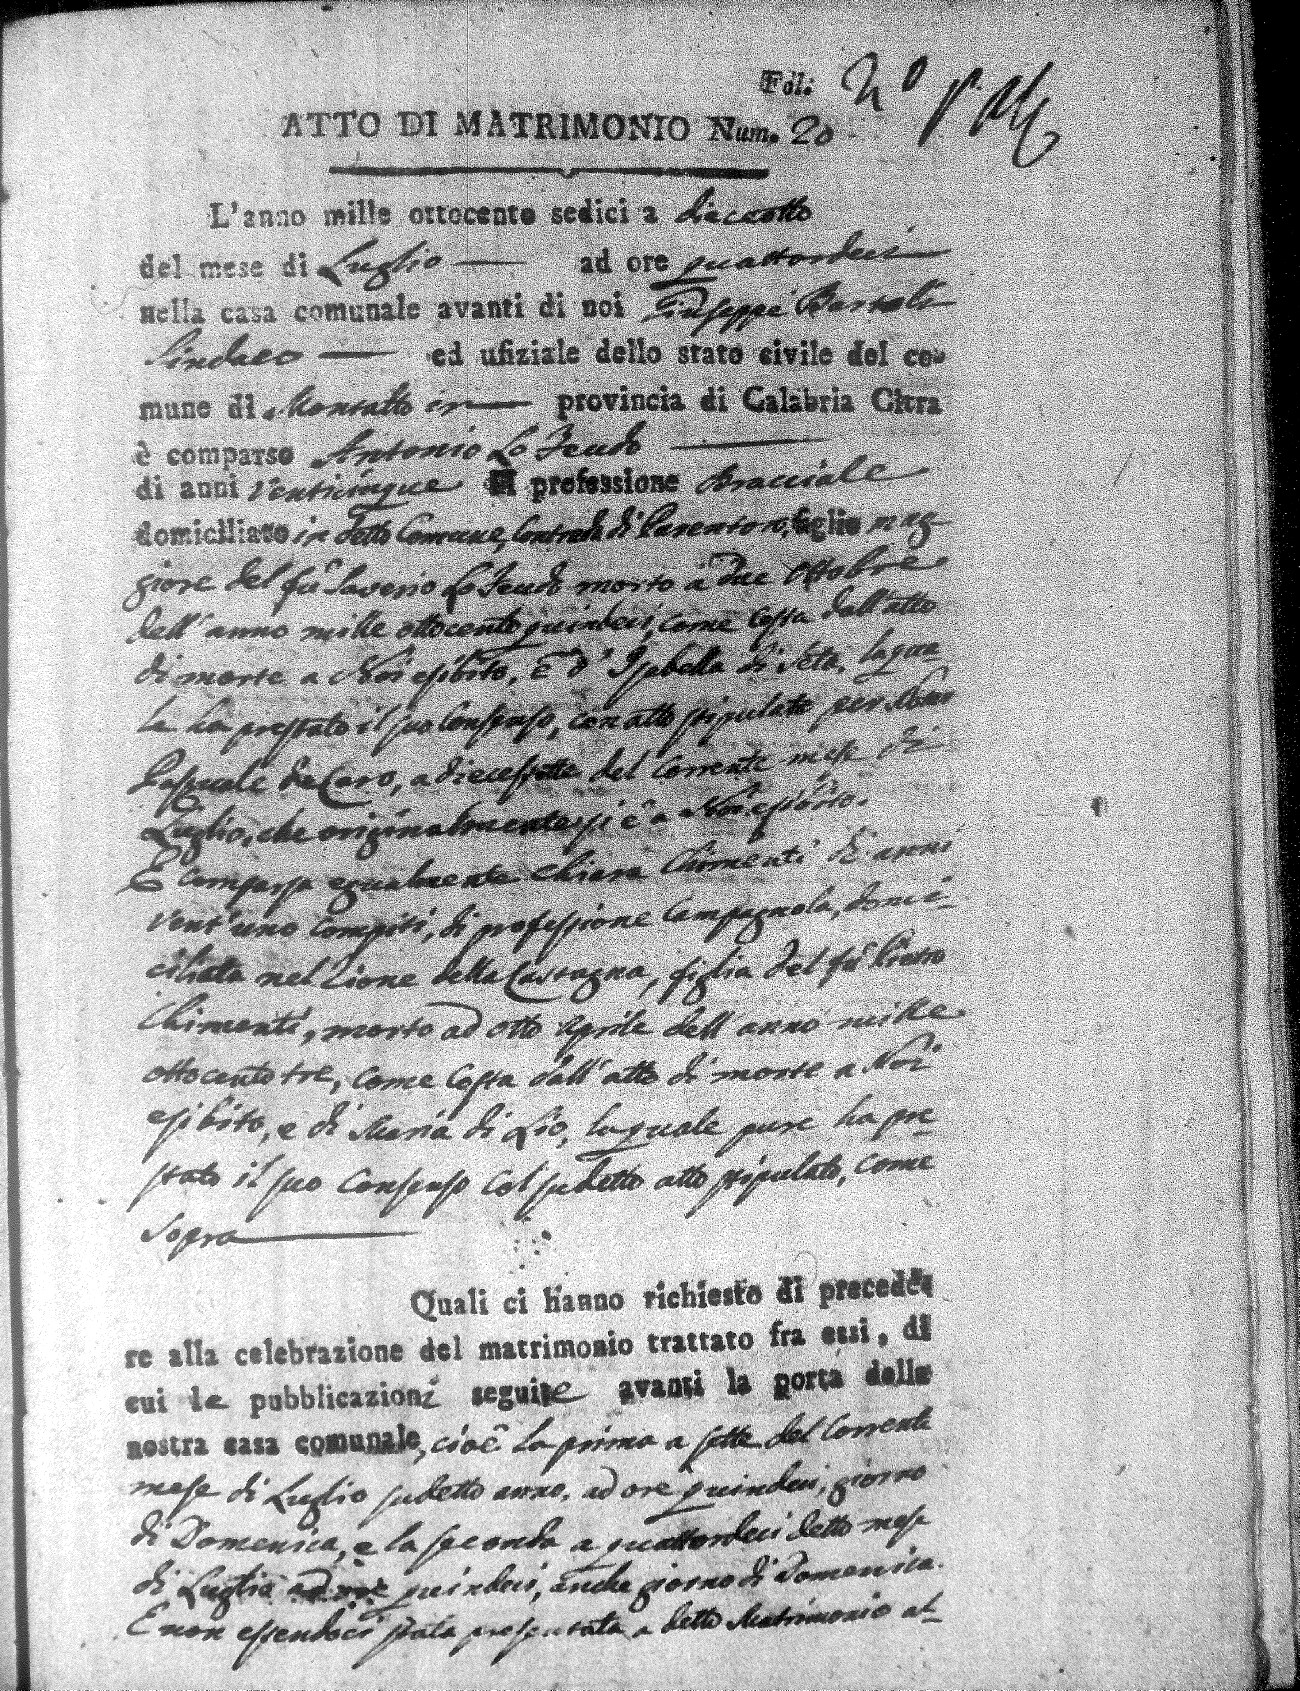 Fol:
ATTO DI MATRIMONIO Num. 20
L'anno mille ottocento sedici a dieceotto
del mese di Luglio — ad ore quattordeci
nella casa comunale avanti di noi Giuseppe
Sindaco — ed ufiziale dello stato civile del co-
mune di Montalto in — provincia di Calabria Citra
è comparso Antonio Lo Feudo —
di anni venticinque di professione Bracciale
domiciliato in detto Comune, Contrada di Parantoro, figlio mag-
giore del fù Saverio Lo Feudo morto à due Ottobre
dell'anno mille ottocento quindeci, come costa dall'atto
di morte a Noi esibito, e d'Isabella di Seta, laqua-
le ha prestato il suo Consenso, con atto stipulato per Notar
Pasquale de Caro, a diecessette del corrente mese di
Luglio, che originalmente si è a Noi esibito.
E comparsa egualmente Chiara Chimenti di anni
vent'uno compiti, di professione Campagnola, domi-
ciliata nel Rione della Castagna, figlia del fù Pietro
Chimenti, morto ad otto Aprile dell'anno mille
ottocento tre, come costa dall'atto di morte a Noi
esibito, e di Maria di Lio, la quale pure ha pre-
stato il suo Consenso col sudetto atto stipulato, come
sopra —
Quali ci hanno richiesto di precede-
re alla celebrazione del matrimonio trattato fra essi, di
cui le pubblicazioni seguite avanti la porta della
nostra casa comunale, cioè la prima a sette del corrente
mese di Luglio sudetto anno, ad ore quindeci, giorno
di Domenica, e la seconda a quattordeci detto mese
di Luglio ad ore quindeci, anche giorno di Domenica.
E non essendoci stata presentata a detto Matrimonio al-